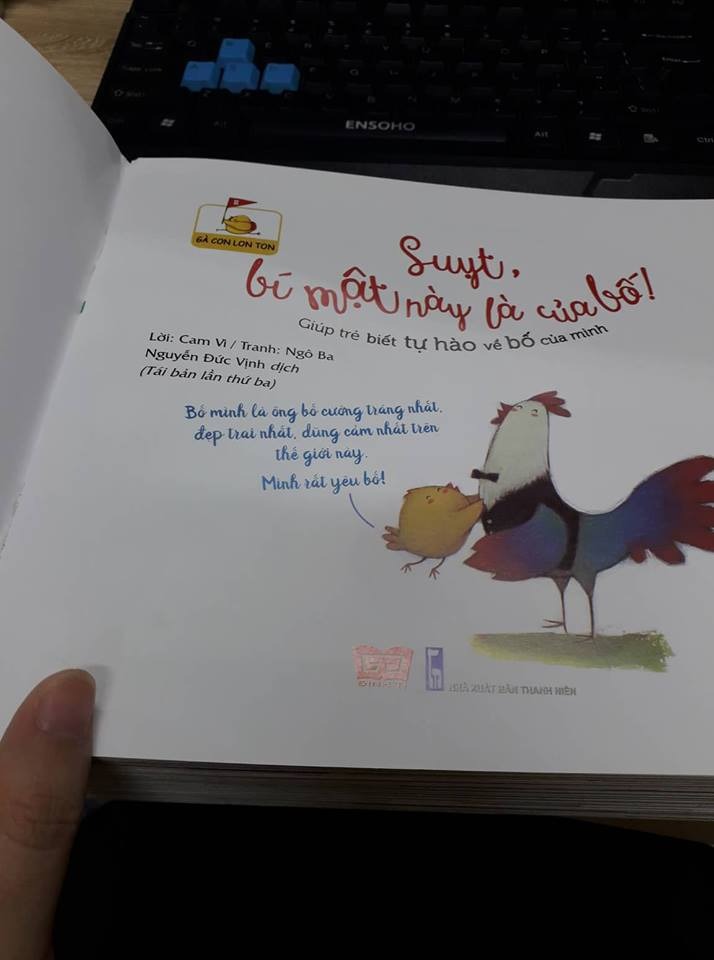 Alt
ENSOHO
Alt
Ctrl
GÀ CON LON TON
Suỵt,
bí mật này là của bố!
Giúp trẻ biết tự hào về bố của mình
Lời: Cam Vì / Tranh: Ngô Ba
Nguyễn Đức Vịnh dịch
(Tái bản lần thứ ba)
Bố mình là ông bố cường tráng nhất,
đẹp trai nhất, dũng cảm nhất trên
thế giới này.
Mình rất yêu bố!
NHÀ XUẤT BẢN THANH NIÊN